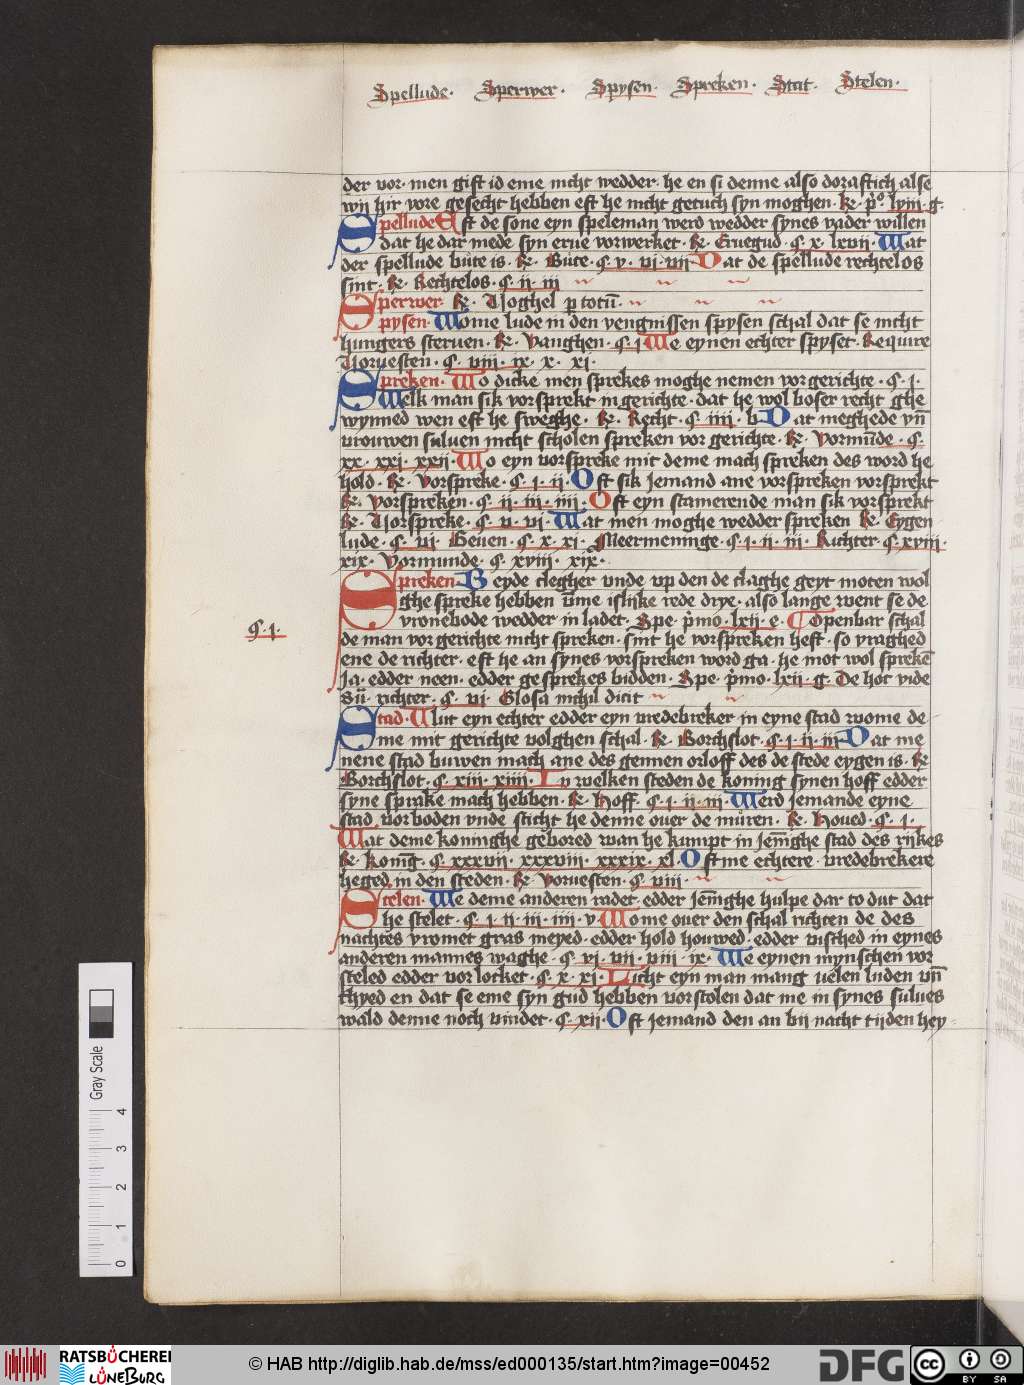 Spellude · Sperwer · Spysen · Spreken · Stat · Stelen ·
der vor · men gift id eme nicht wedder · he en si denne also doraftich alse
wij hir vore gesecht hebben eft he nicht getuch syn moghen · Re · p° lviij · g ·
Spellude Eft de sone eyn speleman werd wedder synes vader willen
dat he dar mede syn erue vorwerket · Re · Eruegud · ꝯ · x · lxvii · Wat
der spellude bute is · Re · Bute · ꝯ · v · vi · vii Dat de spellude rechtelos
sint · Re · Rechtelos · ꝯ · ii · iii
Sperwer Re · Voghel p totū ·
Spysen · Wome lude in den vengnissen spysen schal dat se nicht
hungers steruen · Re · Vanghen · ꝯ · i We eynen echter spyset · Require
Voruesten · ꝯ · viii · ix · x · xi ·
Spreken · Wo dicke men sprekes moghe nemen vor gerichte · ꝯ · j ·
Welk man sik vorsprekt in gerichte · dat he wol boser recht ghe
wynned wen eft he sweghe · Re · Recht · ꝯ · iiii · b Dat meghede vn̄
vrouwen suluen nicht scholen spreken vor gerichte · Re · Vormūde · ꝯ ·
xx · xxi · xxii · Wo eyn vorspreke mit deme mach spreken des word he
hold · Re · Vorspreke · ꝯ · j · ij · Oft sik jemand ane vorspreken vorsprekt
Re · Vorspreken · ꝯ · ii · iii · iiii · Oft eyn stamerende man sik vorsprekt
Re · Vorspreke · ꝯ · v · vi · Wat men moghe wedder spreken Re · Eygen
lude · ꝯ · vi · Geuen · ꝯ · x · xi · Meermeninge · ꝯ · j · ii · iii · Richter · ꝯ · xviii ·
xix · Vormunde · ꝯ · xviii · xix ·
Spreken · Beyde clegher vnde vp den de claghe geyt moten wol
ghe spreke hebben v̄me islijke rede drye · also lange went se de
vronebode wedder in ladet · Spe · p̄mo · lxii · e · Openbar schal
ꝯ · j ·
de man vor gerichte nicht spreken · sint he vorspreken heft · so vraghed
ene de richter · eft he an synes vorspreken word ga · he mot wol sprekē
Ja · edder neen · edder gesprekes bidden · Spe · p̄mo · lxii · g · De hoc vide
Sū · richter · ꝯ · vi · Glosa nichil dicit
Stad · Alut eyn echter edder eyn vredebreker in eyne stad wome de
me mit gerichte volghen schal · Re · Borchslot · ꝯ · i · ii · iii Dat me
nene stad buwen mach ane des gennen orloff des de stede eygen is · Re
Borchslot · ꝯ · xiii · xiiii · In welken steden de koning synen hoff edder
syne sprake mach hebben · Re · Hoff · ꝯ · i · ii · iii · Werd jemande eyne
stad vorboden vnde sticht he denne ouer de muren · Re · Houed · ꝯ · j ·
Wat deme koninghe gebored wan he kumpt in jenighe stad des rijkes
Re · Konig · ꝯ · xxxvii · xxxviii · xxxix · xl · Oft me echtere · vredebrekere
heged in den steden · Re · Voruesten · ꝯ · viii ·
Stelen · We deme anderen radet edder jenighe hulpe dar to dut dat
he stelet · ꝯ · j · ii · iii · iiii · v Wome ouer den schal richten de des
nachtes vromet gras meyed · edder hold houwed · edder visched in eynes
anderen mannes waghe · ꝯ · vj · vii · viii · ix · We eynen mynschen vor
steled edder vor locket · ꝯ · x · xi · Licht eyn man mang velen luden vn̄
thyed en dat se eme syn gud hebben vorstolen dat me in synes sulues
wald denne noch vindet · ꝯ · xii · Oft jemand den an bij nacht tijden hey
Gray Scale
0 1 2 3 4
RATSBÜCHEREI LÜNEBURG
© HAB http://diglib.hab.de/mss/ed000135/start.htm?image=00452
DFG
cc BY SA